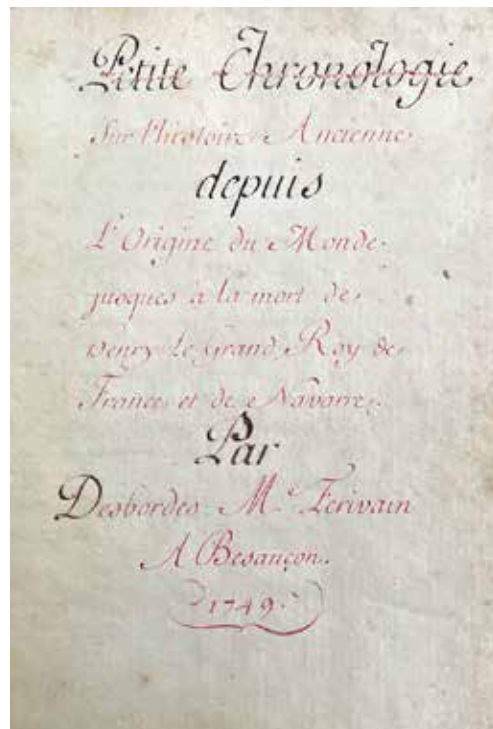 Petite Chronologie
Sur l'histoire Ancienne
depuis
L'Origine du Monde
jusques a la mort de
henry le grand Roy de
France et de Navarre.
Par
Desbordes M.e Ecrivain
A Besançon.
1749.